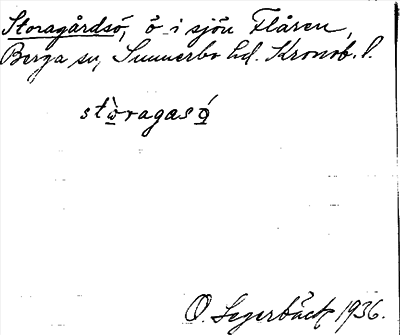 Storagårdsö, ö i sjön Flåren,
Berga sn, Sunnerbo hd. Kronob. l.
stὼragasǫ́
O. Segerbäck 1936.